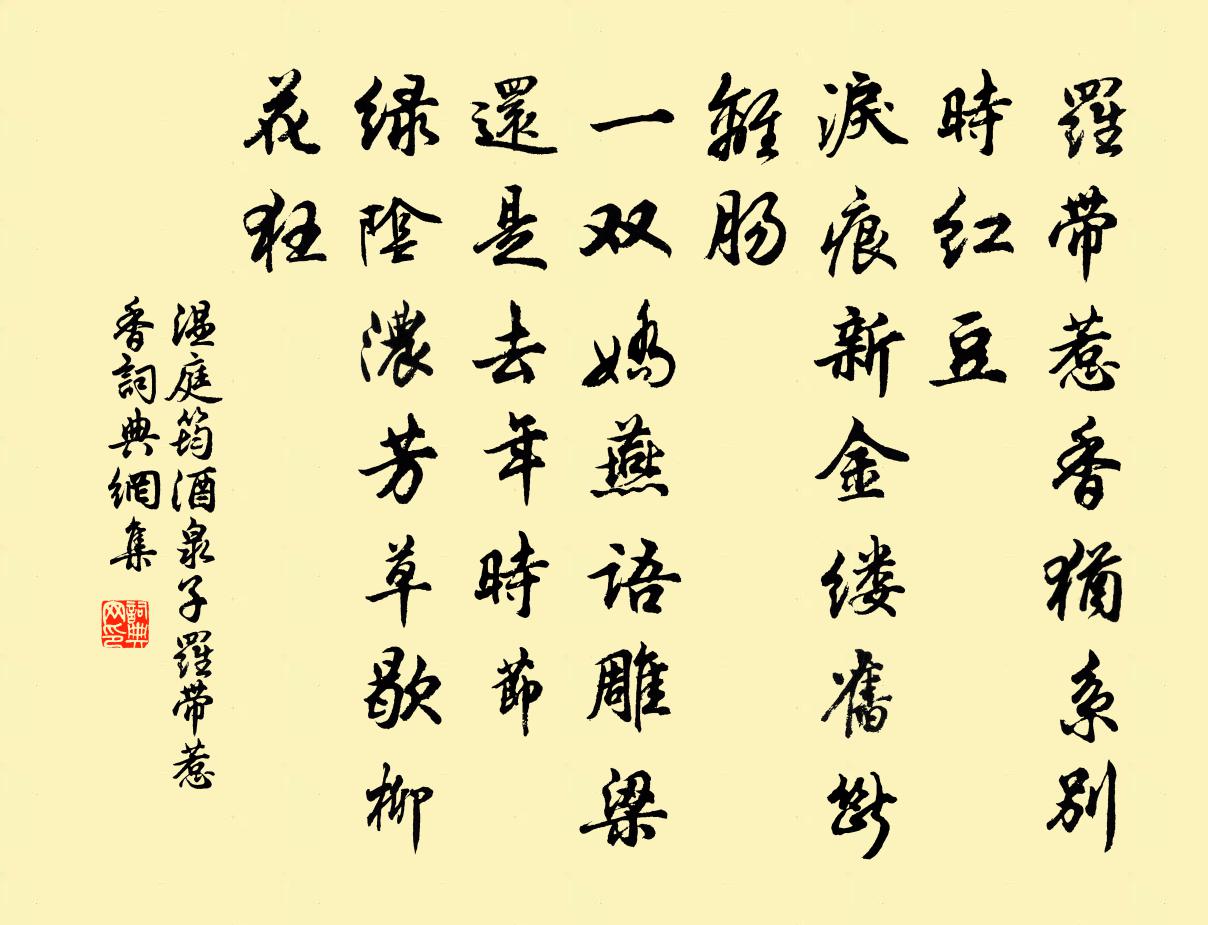 羅带惹香猶系别
時红豆
淚痕新金缕舊斷
離肠
一双嬌燕語雕梁
還是去年時節
緑陰濃芳草歇柳
花狂
温庭筠酒泉子羅带惹
香詞典網集
詞典
网印